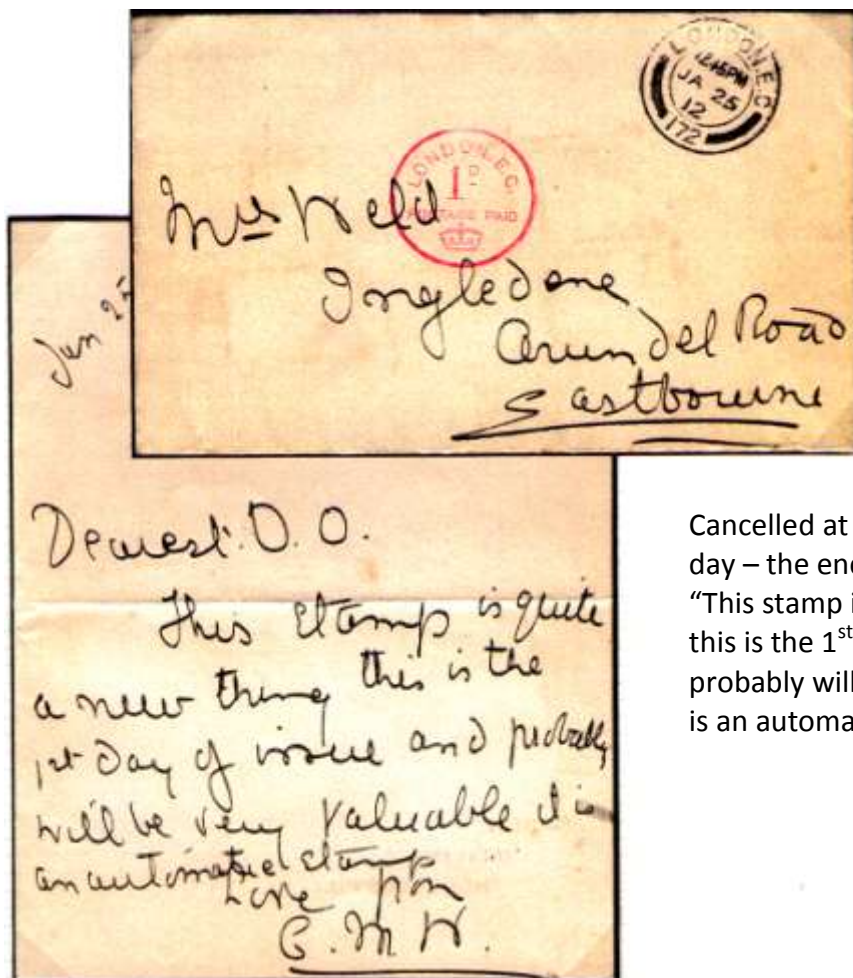 LONDON.E.C
12.45PM
JA 25
12
172
LONDON.E.C.
1D
POSTAGE PAID
Mrs Weld
Ingledene
Arundel Road
Eastbourne
Jan 25
Dearest D.O.
This stamp is quite
a new thing this is the
1st Day of issue and probably
will be very valuable it is
an automatic stamp
Love from
C.M.W.
Cancelled at
day – the enc
“This stamp i
this is the 1st
probably will
is an automa